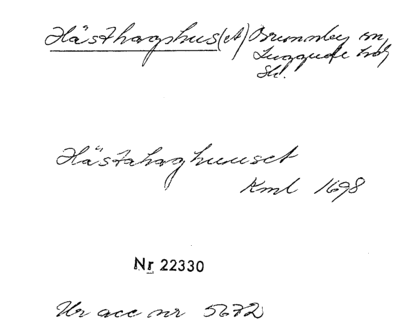 Hästhagshus(et) Brunnby sn,
Luggude hd,
Sk.
Hästahaghuuset
Kml 1698
Nr 22330
Ur acc nr 5672